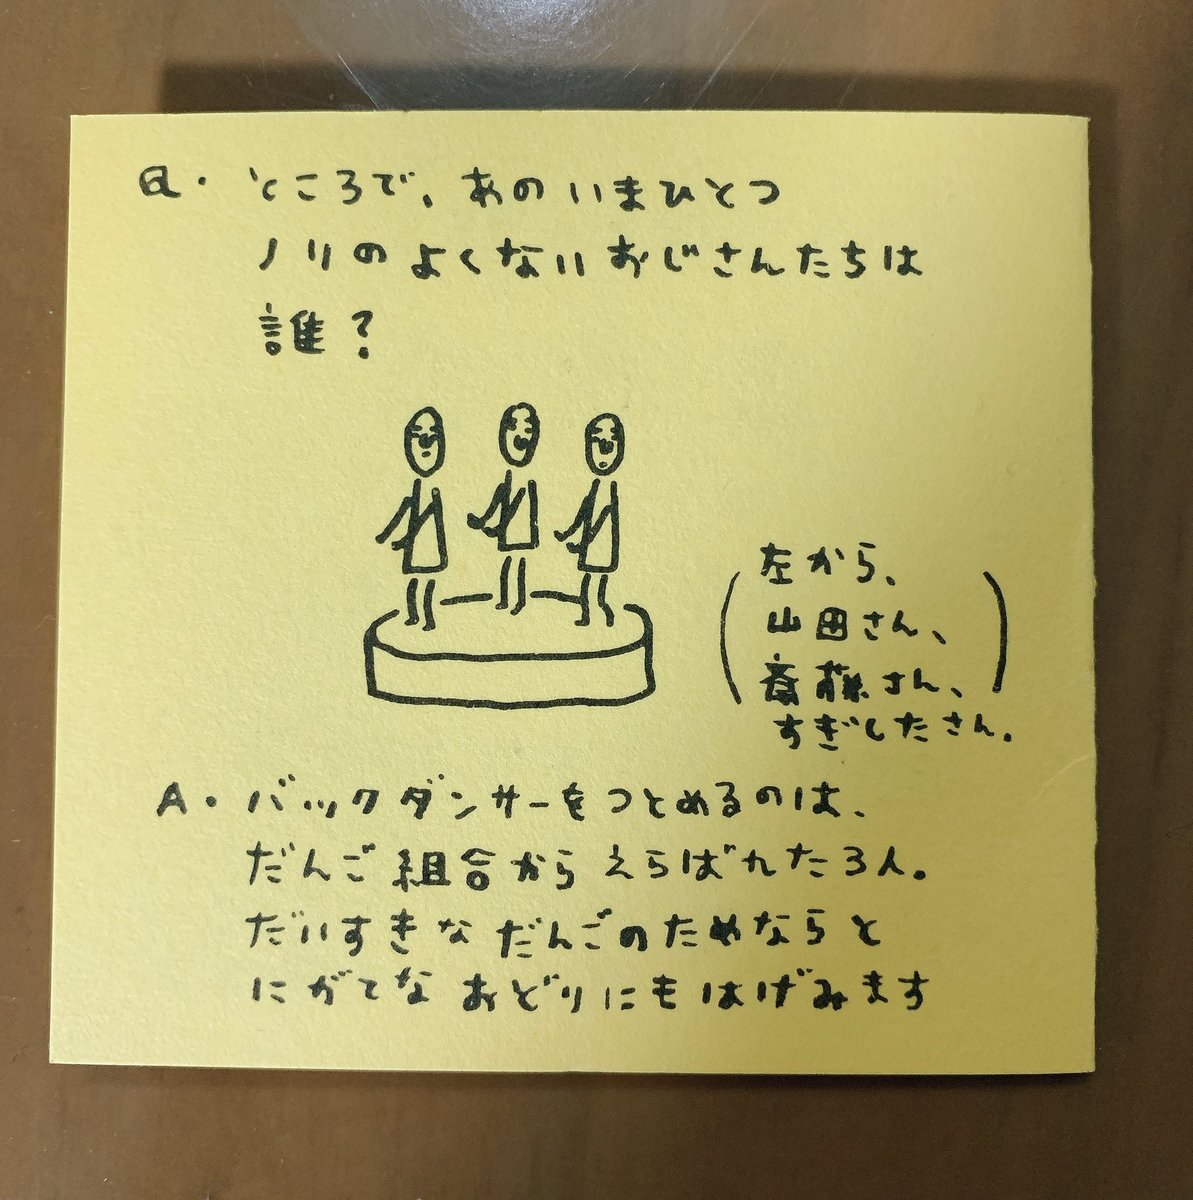 Q. ところで、あのいまひとつ
ノリのよくないおじさんたちは
誰？
左から、
山田さん、
斎藤さん、
すぎしたさん。
A. バックダンサーをつとめるのは、
だんご組合からえらばれた3人。
だいすきなだんごのためならと
にがてなおどりにもはげみます